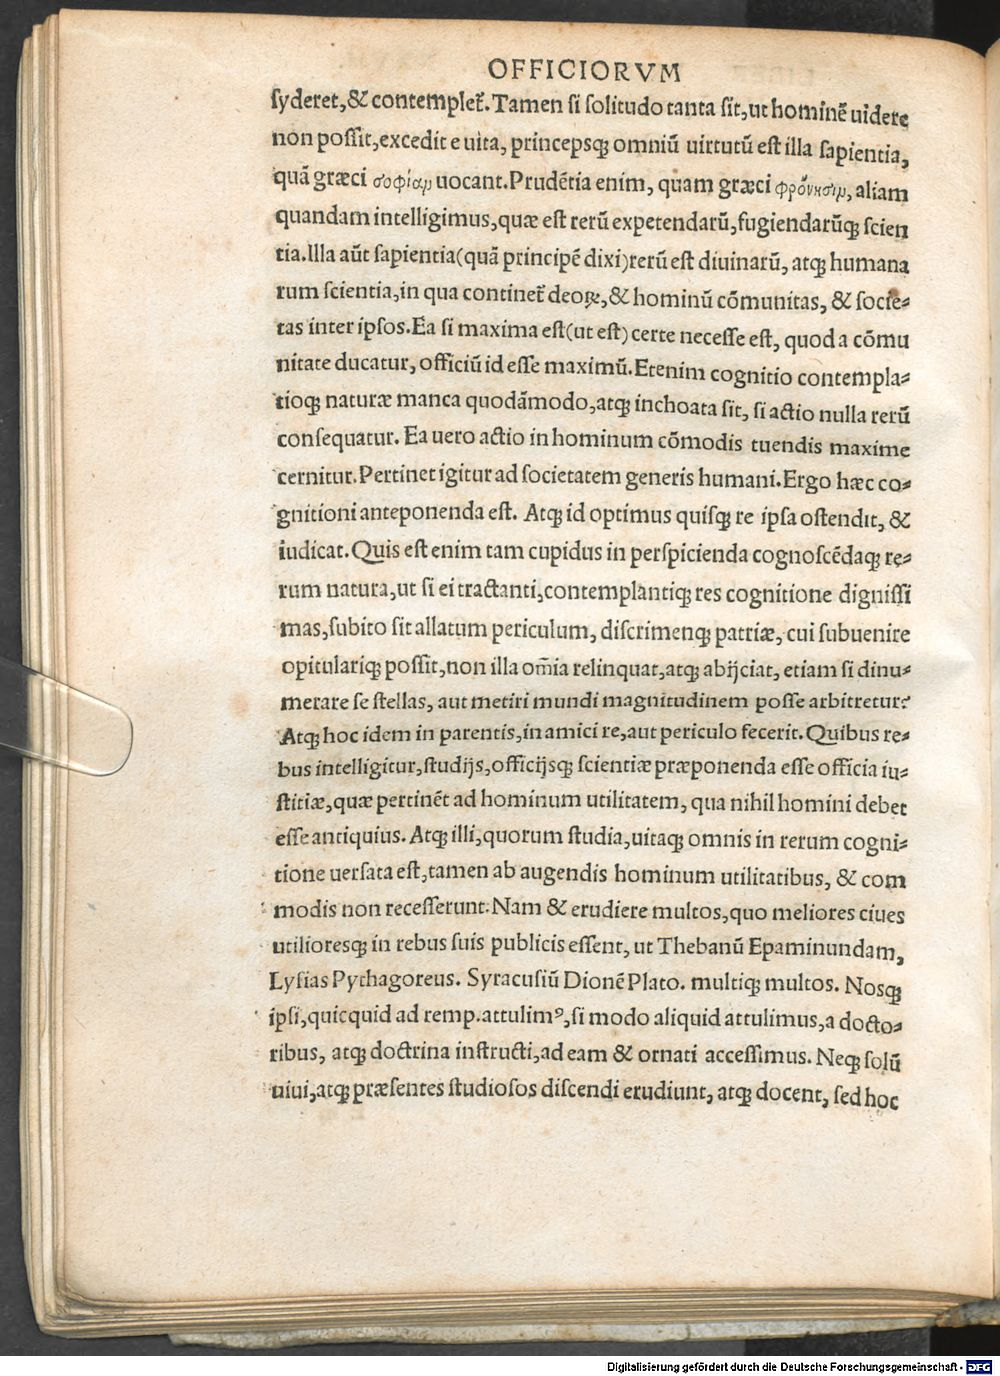 OFFICIORVM
syderet,& contemplet̃. Tamen si solitudo tanta sit,ut hominẽ uidere
non possit,excedit e uita, princepsq; omniũ uirtutũ est illa sapientia,
quã græci σοφίαμ uocant.Prudẽtia enim, quam græci φρόνησιμ, aliam
quandam intelligimus,quæ est rerũ expetendarũ,fugiendarũq; scien
tia.Illa aũt sapientia(quã principẽ dixi)rerũ est diuinarũ, atq; humana
rum scientia,in qua continet̃ deoꝝ,& hominũ cõmunitas, & socie-
tas inter ipsos.Ea si maxima est(ut est) certe necesse est, quod a cõmu
nitate ducatur, officiũ id esse maximũ. Etenim cognitio contempla-
tioq; naturæ manca quodãmodo,atq; inchoata sit, si actio nulla rerũ
consequatur. Ea uero actio in hominum cõmodis tuendis maxime
cernitur.Pertinet igitur ad societatem generis humani.Ergo hæc co-
gnitioni anteponenda est. Atq; id optimus quisq; re ipsa ostendit, &
iudicat.Quis est enim tam cupidus in perspicienda cognoscẽdaq; re-
rum natura,ut si ei tractanti,contemplantiq; res cognitione dignissi
mas,subito sit allatum periculum, discrimenq; patriæ, cui subuenire
opitulariq; possit,non illa om̃ia relinquat,atq; abijciat, etiam si dinu-
merare se stellas, aut metiri mundi magnitudinem posse arbitretur?
Atq; hoc idem in parentis,in amici re,aut periculo fecerit.Quibus re-
bus intelligitur,studijs,officijsq; scientiæ præponenda esse officia iu-
stitiæ,quæ pertinẽt ad hominum utilitatem, qua nihil homini debet
esse antiquius. Atq; illi,quorum studia,uitaq; omnis in rerum cogni-
tione uersata est,tamen ab augendis hominum utilitatibus, & com
modis non recesserunt. Nam & erudiere multos,quo meliores ciues
utilioresq; in rebus suis publicis essent, ut Thebanũ Epaminundam,
Lysias Pythagoreus. Syracusiũ Dionẽ Plato. multiq; multos. Nosq;
ipsi,quicquid ad remp.attulimꝰ,si modo aliquid attulimus,a docto-
ribus, atq; doctrina instructi,ad eam & ornati accessimus. Neq; solũ
uiui,atq; præsentes studiosos discendi erudiunt, atq; docent, sed hoc
Digitalisierung gefördert durch die Deutsche Forschungsgemeinschaft - DFG